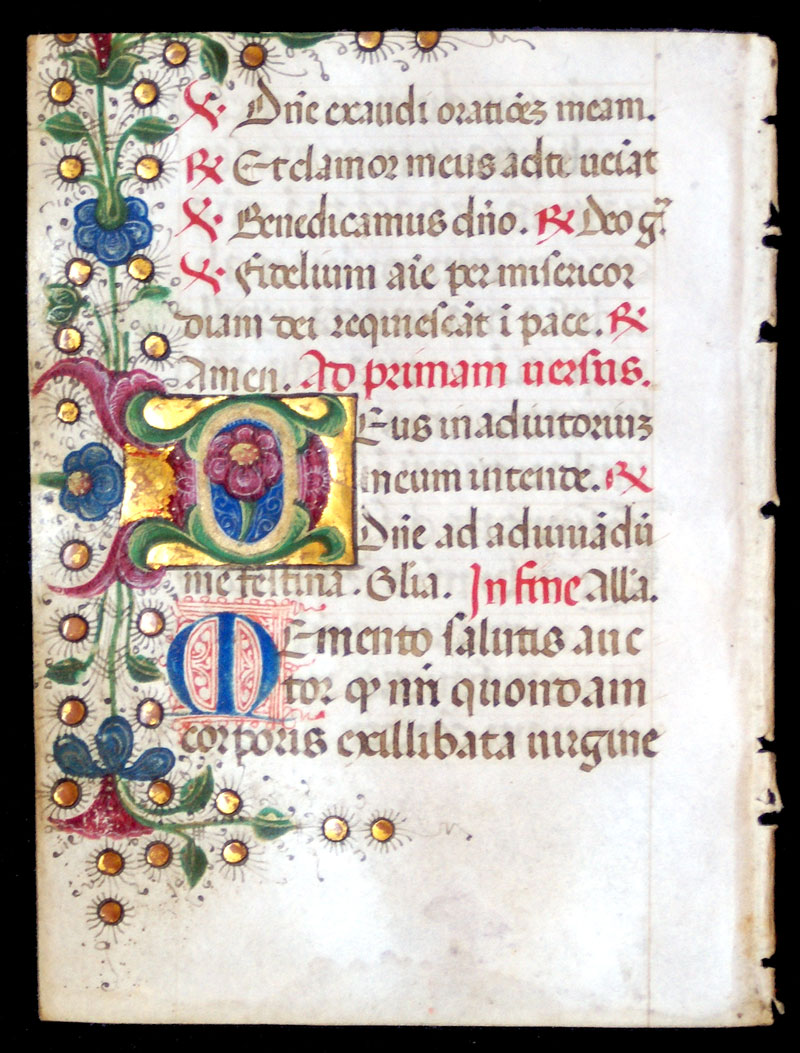 ℣ Dñe exaudi oratiõez meam.
℟ Et clamor meus ad te ueĩat
℣ Benedicamus dño. ℟ Deo g̃
℣ Fidelium aĩe per misericor
diam dei requiescãt ĩ pace. ℟
Amen. Ad primam uersus.
Deus in adiutoriuʒ
meum intende. ℟
Dñe ad adiuuãdũ
me festina. Glia. In fine Alla.
Memento salutis auc
tor ꝙ nr̃i quondam
corporis ex illibata uirgine